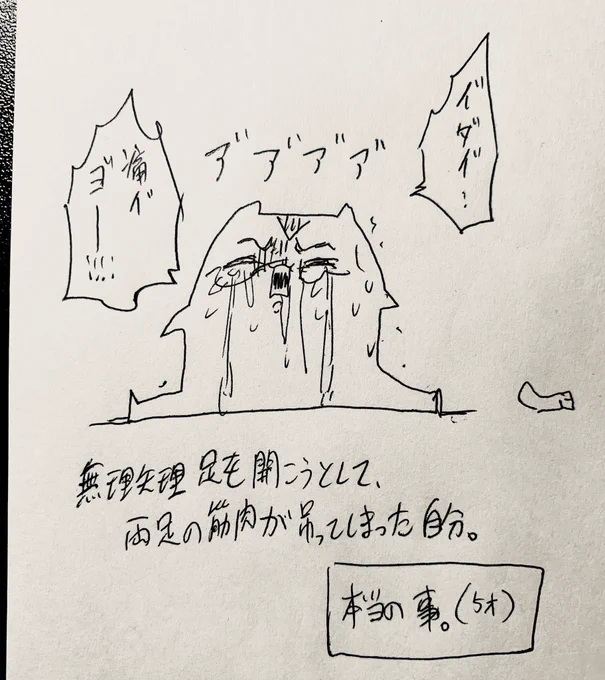 イ゛ダイ゛!
ア゛ア゛ア゛ア゛
痛イ゛
ヨ゛ー!!!!
無理矢理 足を開こうとして、
両足の筋肉が吊ってしまった自分。
本当の事。(5才)